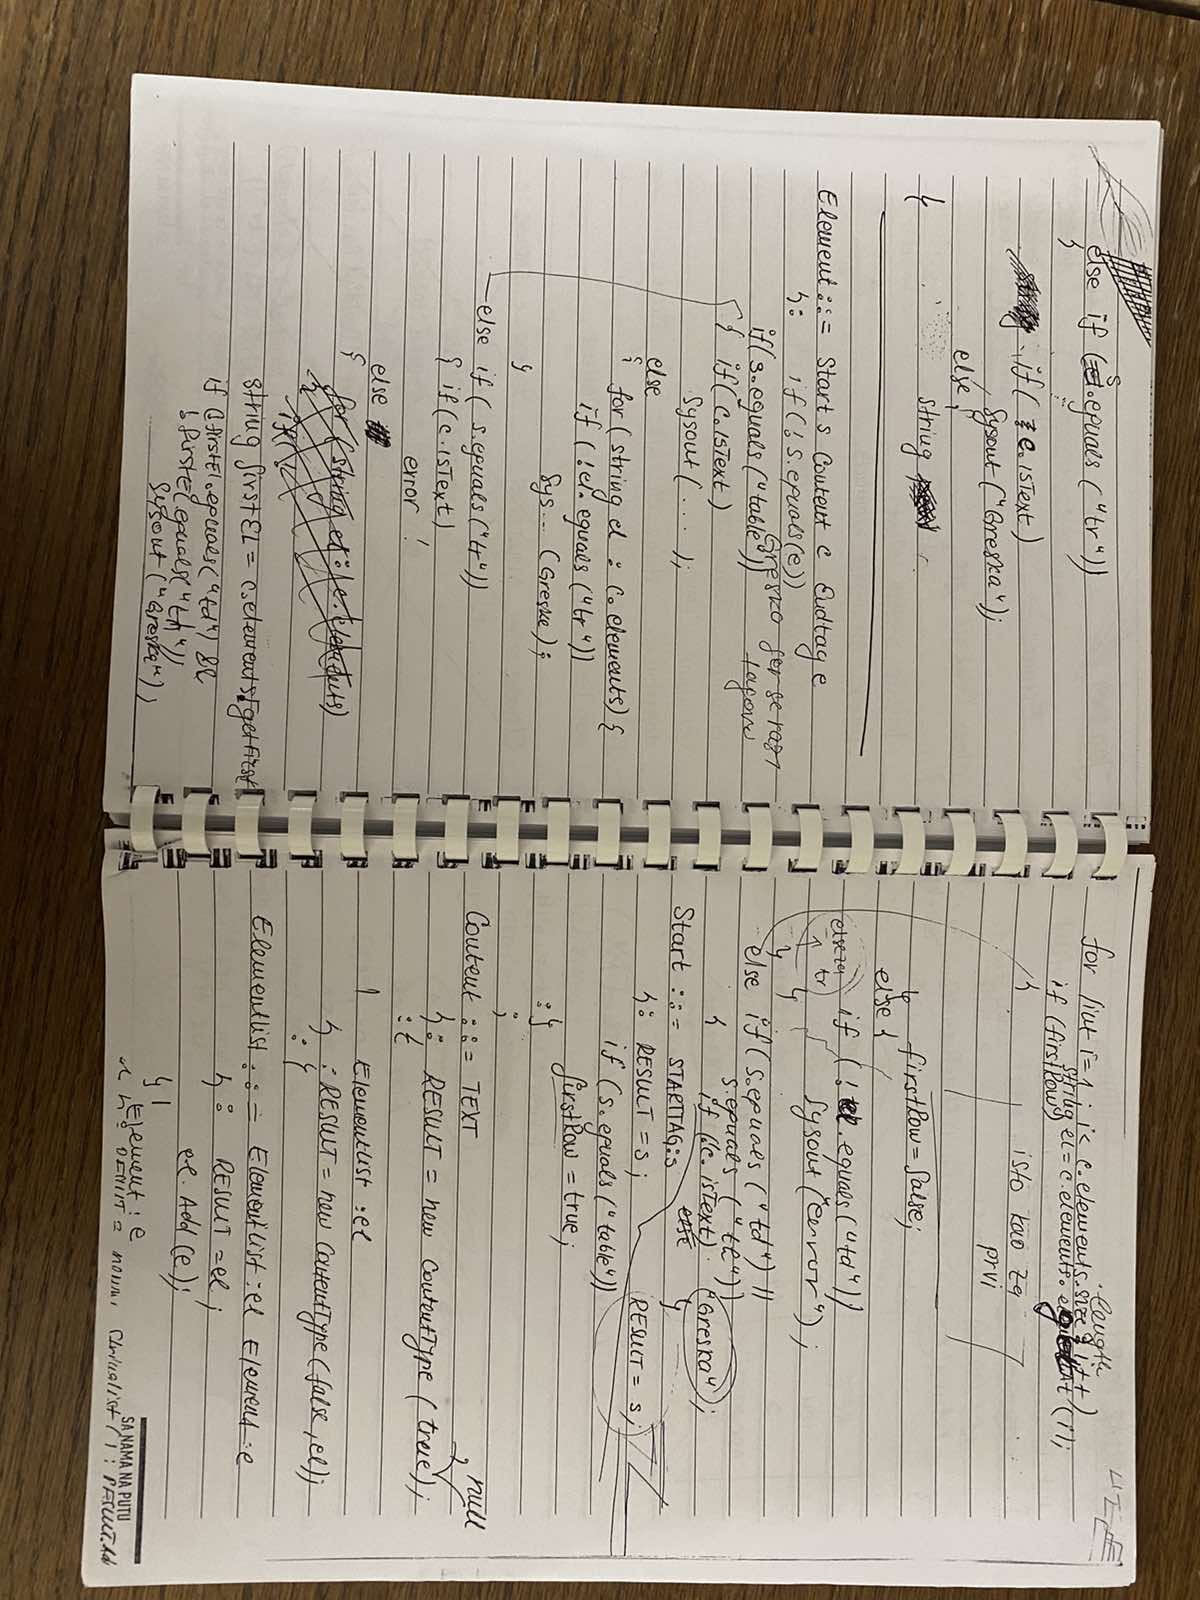 else if (s.equals("tr"))
{
if (c.isText)
Sysout("Greska");
else {
string
}
Element ::= Start s Content c Endtag e
{: if (!s.equals(e))
Greska jer se razl tagovi
if (s.equals("table"))
{ if (c.isText)
Sysout(....);
else
{ for (string el : c.elements) {
if (!el.equals("tr"))
Sys... (Greska);
}
else if (s.equals("tr"))
{ if (c.isText)
error!
else
{
for (string el : c.elements)
string firstEl = c.elements.getFirst
if (!firstEl.equals("td") &&
!firstEl.equals("th"))
Sysout("Greska");
for (int i=1; i< c.elements.length; i++)
string el = c.elements.elementAt(i);
if (firstRow)
{
isto kao za
prvi
firstRow = false;
}
else {
if (!el.equals("td"))
Sysout("error");
tr
}
else if (s.equals("td") ||
s.equals("th"))
{ if (!c.isText) "Greska";
Start ::= STARTTAG:s
{: RESULT = s;
RESULT = s;
if (s.equals("table"))
firstRow = true;
:}
;
Content ::= TEXT
{: RESULT = new ContentType(true, null);
:}
| ElementList:el
{: RESULT = new ContentType(false, el);
:}
ElementList ::= ElementList:el Element:e
{: RESULT = el;
el.Add(e);
:}
| Element:e
SA NAMA NA PUTU